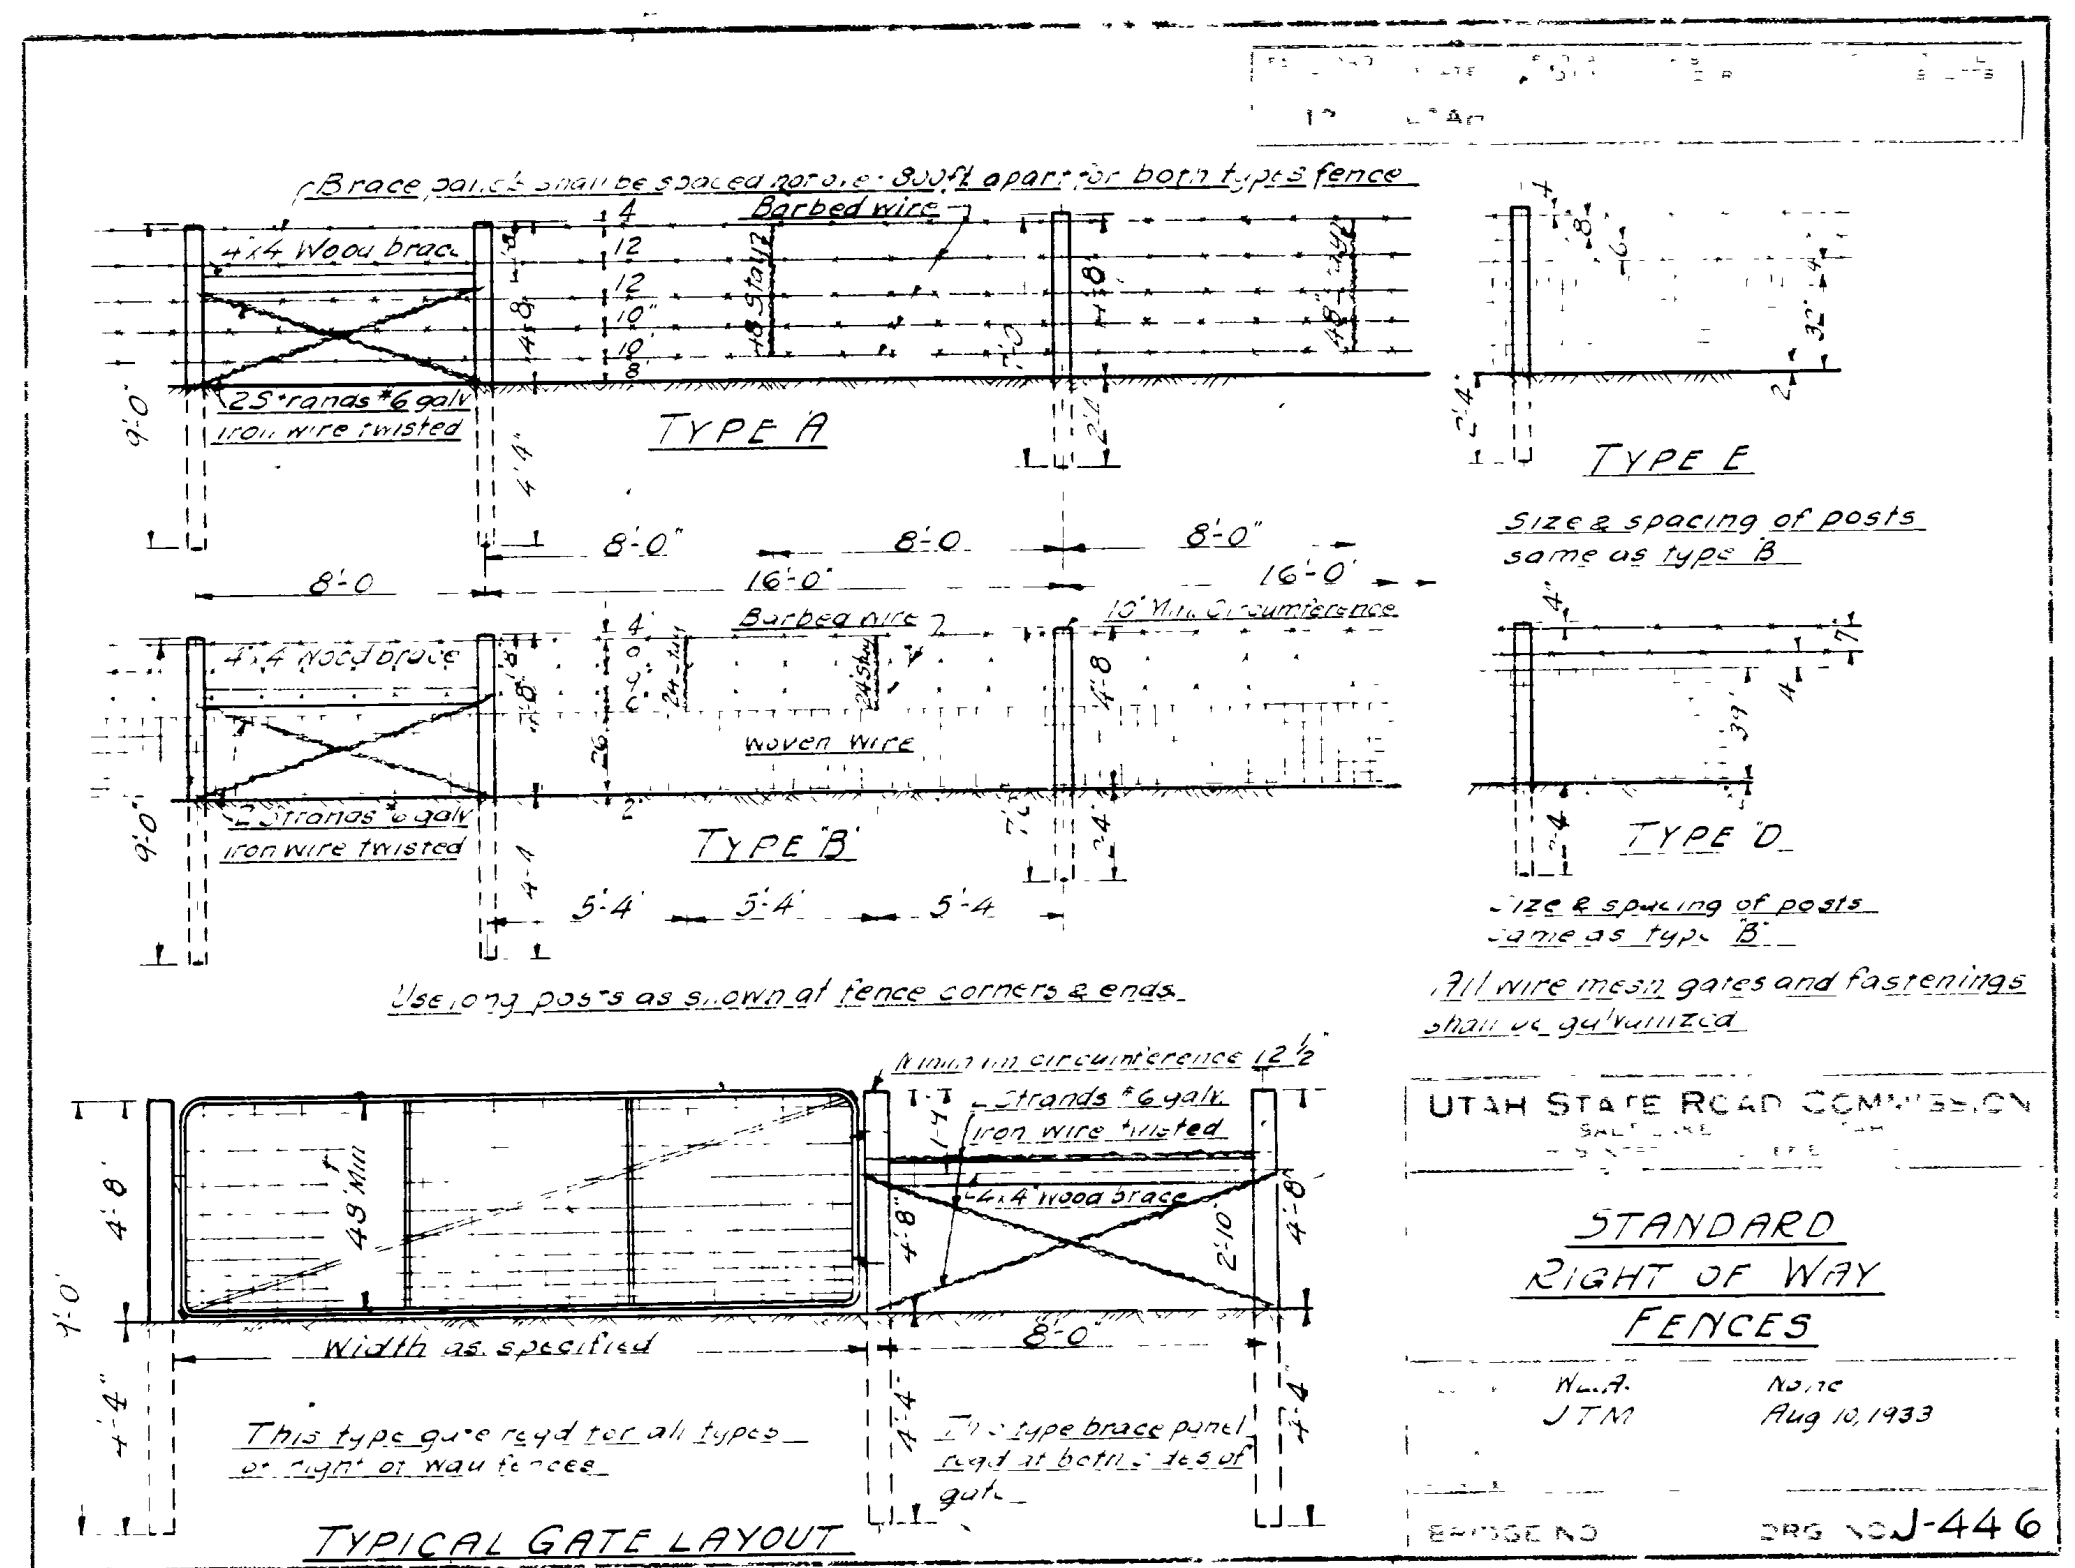 UTAH
Brace panels shall be spaced not over 800ft. apart for both types fence
Barbed wire
4"x4" Wood brace
4
12
12
10"
10"
8"
48 Stay
48" Stay
4'-8"
4'-8
9'-0"
7'-0
2'-4
4'-4"
2 Strands #6 galv
iron wire twisted
TYPE A
4
8
6
4
32"
2
2'-4"
TYPE E
Size & spacing of posts
same as type B
8'-0"
8'-0
8'-0"
8'-0
16'-0"
16'-0"
Barbed wire
10" Min. Circumference
4x4 Wood brace
4"
9"
9"
6"
26
2"
24" Stay
24" Stay
4'-8
9'-0"
4'-4
2'-4"
woven wire
2 Strands #6 galv
iron wire twisted
TYPE "B"
5'-4"
5'-4"
5'-4
4"
7"
4
39"
2'-4
TYPE "D
Size & spacing of posts
same as type "B"
Use long posts as shown at fence corners & ends.
All wire mesh gates and fastenings
shall be galvanized
Minimum circumference 12 1/2"
2 Strands #6 galv.
iron wire twisted
1'-4
4x4" wood brace
48" Min
4'-8"
4'-8"
2'-10"
4'-8"
4'-4"
4'-4"
4'-4"
Width as specified
8'-0"
This type gate reqd for all types
of right of way fences
This type brace panel
reqd at both sides of
gate
TYPICAL GATE LAYOUT
UTAH STATE ROAD COMMISSION
SALT LAKE
STANDARD
RIGHT OF WAY
FENCES
None
JTM
Aug 10, 1933
BRIDGE NO
DRG NO. J-446